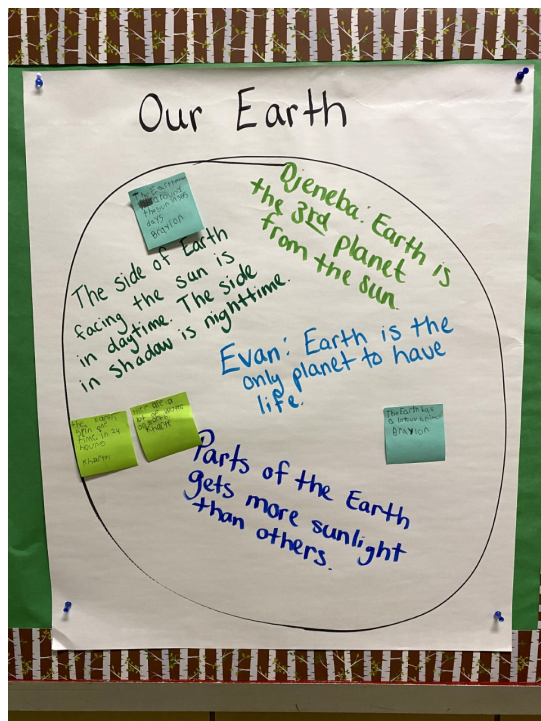 Our Earth
The Earth
around
the sun
days
Braylon
Djeneba: Earth is
the 3rd planet
from the sun.
The side of Earth
facing the sun is
in daytime. The side
in shadow is nighttime.
Evan: Earth is the
only planet to have
life.
the Earth
Spin one
time in 24
hours
Kharth
a
lot of
on earth
The Earth has
a lot
Braylon
Parts of the Earth
gets more sunlight
than others.